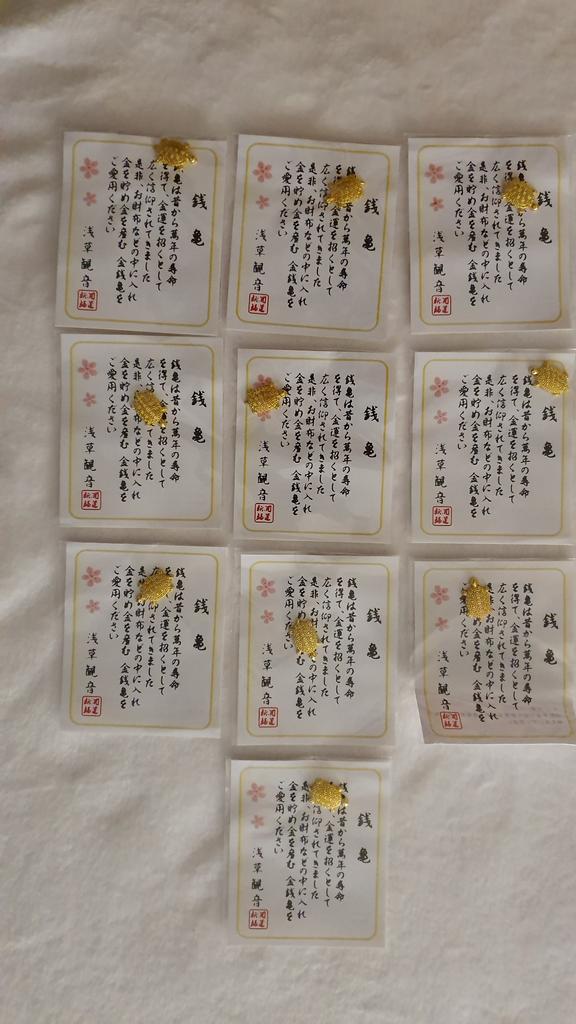 銭亀
亀は昔から萬年の寿命
を得て、金運を招くとして
広く信仰されてきました
是非、お財布などの中に入れ
金を貯め金を産む 金銭亀を
ご愛用ください
浅草観音
銭亀
は昔から萬年の寿命
を得て、金運を招くとして
広く信仰されてきました
是非、お財布などの中に入れ
金を貯め金を産む 金銭亀を
ご愛用ください
浅草観音
銭亀
は昔から萬年の寿命
を得て、金運を招くとして
広く信仰されてきました
是非、お財布などの中に入れ
金を貯め金を産む 金銭亀を
ご愛用ください
浅草観音
銭亀
銭亀は昔から萬年の寿命
を得て、金運を招くとして
広く されてきました
是非、お財布などの中に入れ
金を貯め金を産む 金銭亀を
ご愛用ください
浅草観音
銭亀
銭亀は昔から萬年の寿命
を得て、金運を招くとして
広く信仰されてきました
是非、お財布などの中に入れ
金を貯め金を産む 金銭亀を
ご愛用ください
浅草観音
銭亀
銭亀は昔から萬年の寿命
を得て、金運を招くとして
広く信仰されてきました
是非、お財布などの中に入れ
金を貯め金を産む 金銭亀を
ご愛用ください
浅草観音
銭亀
銭亀は昔から萬年の寿命
金運を招くとして
信仰されてきました
是 お財布などの中に入れ
金を貯め金を産む 金銭亀を
ご愛用ください
浅草観音
銭亀
銭亀は昔から萬年の寿命
を得て、金運を招くとして
広く信仰されてきました
是非、お財布などの中に入れ
金を貯め 金銭亀を
ご愛用ください
浅草観音
銭亀
銭亀は昔から萬年の寿命
を得て、金運を招くとして
広く信仰されてきました
お財布などの中に入れ
金を 金を産む 金銭亀を
ご愛用ください
浅草観音
銭亀
は昔から萬年の寿命
金運を招くとして
信仰されてきました
是非、お財布などの中に入れ
金を貯め金を産む 金銭亀を
ご愛用ください
浅草観音